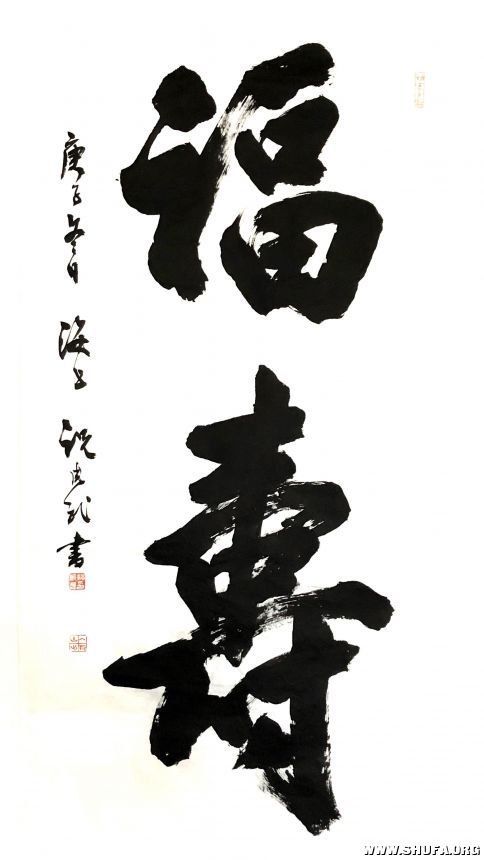 福壽
庚子冬日 海上 祝成武書
WWW.SHUFA.ORG